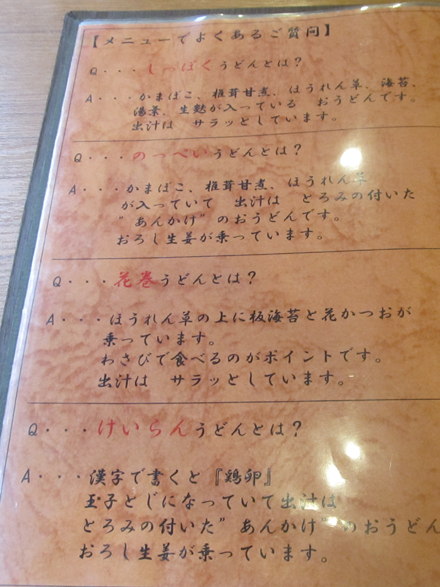 【メニューでよくあるご質問】
Q・・・しっぽくうどんとは？
A・・・かまぼこ、椎茸甘煮、ほうれん草、海苔、
湯葉、生麩が入っている おうどんです。
出汁は サラッとしています。
Q・・・のっぺいうどんとは？
A・・・かまぼこ、椎茸甘煮、ほうれん草
が入っていて 出汁は とろみの付いた
"あんかけ"のおうどんです。
おろし生姜が乗っています。
Q・・・花巻うどんとは？
A・・・ほうれん草の上に板海苔と花かつおが
乗っています。
わさびで食べるのがポイントです。
出汁は サラッとしています。
Q・・・けいらんうどんとは？
A・・・漢字で書くと『鶏卵』
玉子とじになっていて出汁は
とろみの付いた"あんかけ"のおうどん
おろし生姜が乗っています。